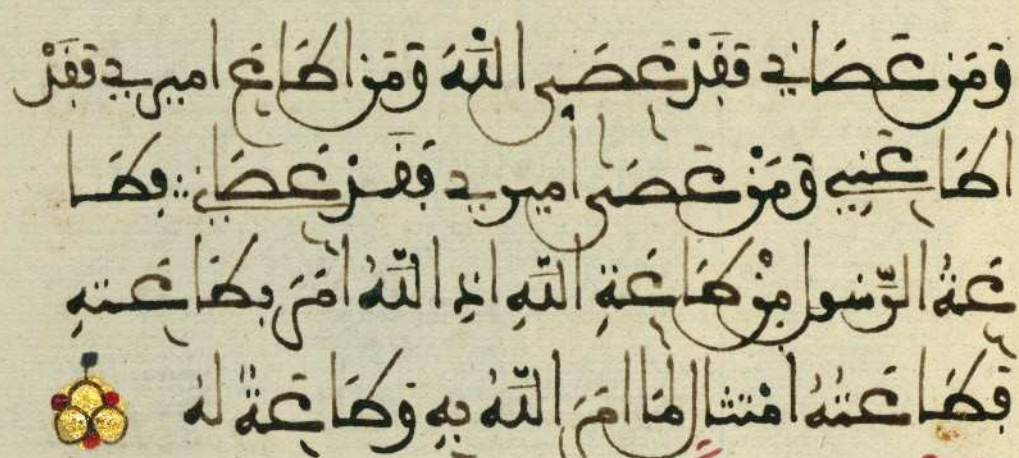 وَمَن عَصَانِي فَقَدْ عَصَى اللَّهَ وَمَن اطَاعَ امِيرِي فَقَدْ
اطَاعَنِي وَمَنْ عَصَى أمِيرِي فَقَدْ عَصَانِي فطَا
عَةُ الرَّسُولِ مِنْ طَاعَةِ اللَّهِ اذِ اللَّهُ أمَرَ بِطَاعَتِهِ
فَطَاعَتُهُ امْتِثَالٌ لِمَا امَرَ اللَّهُ بِهِ وَطَاعَةٌ لَهُ